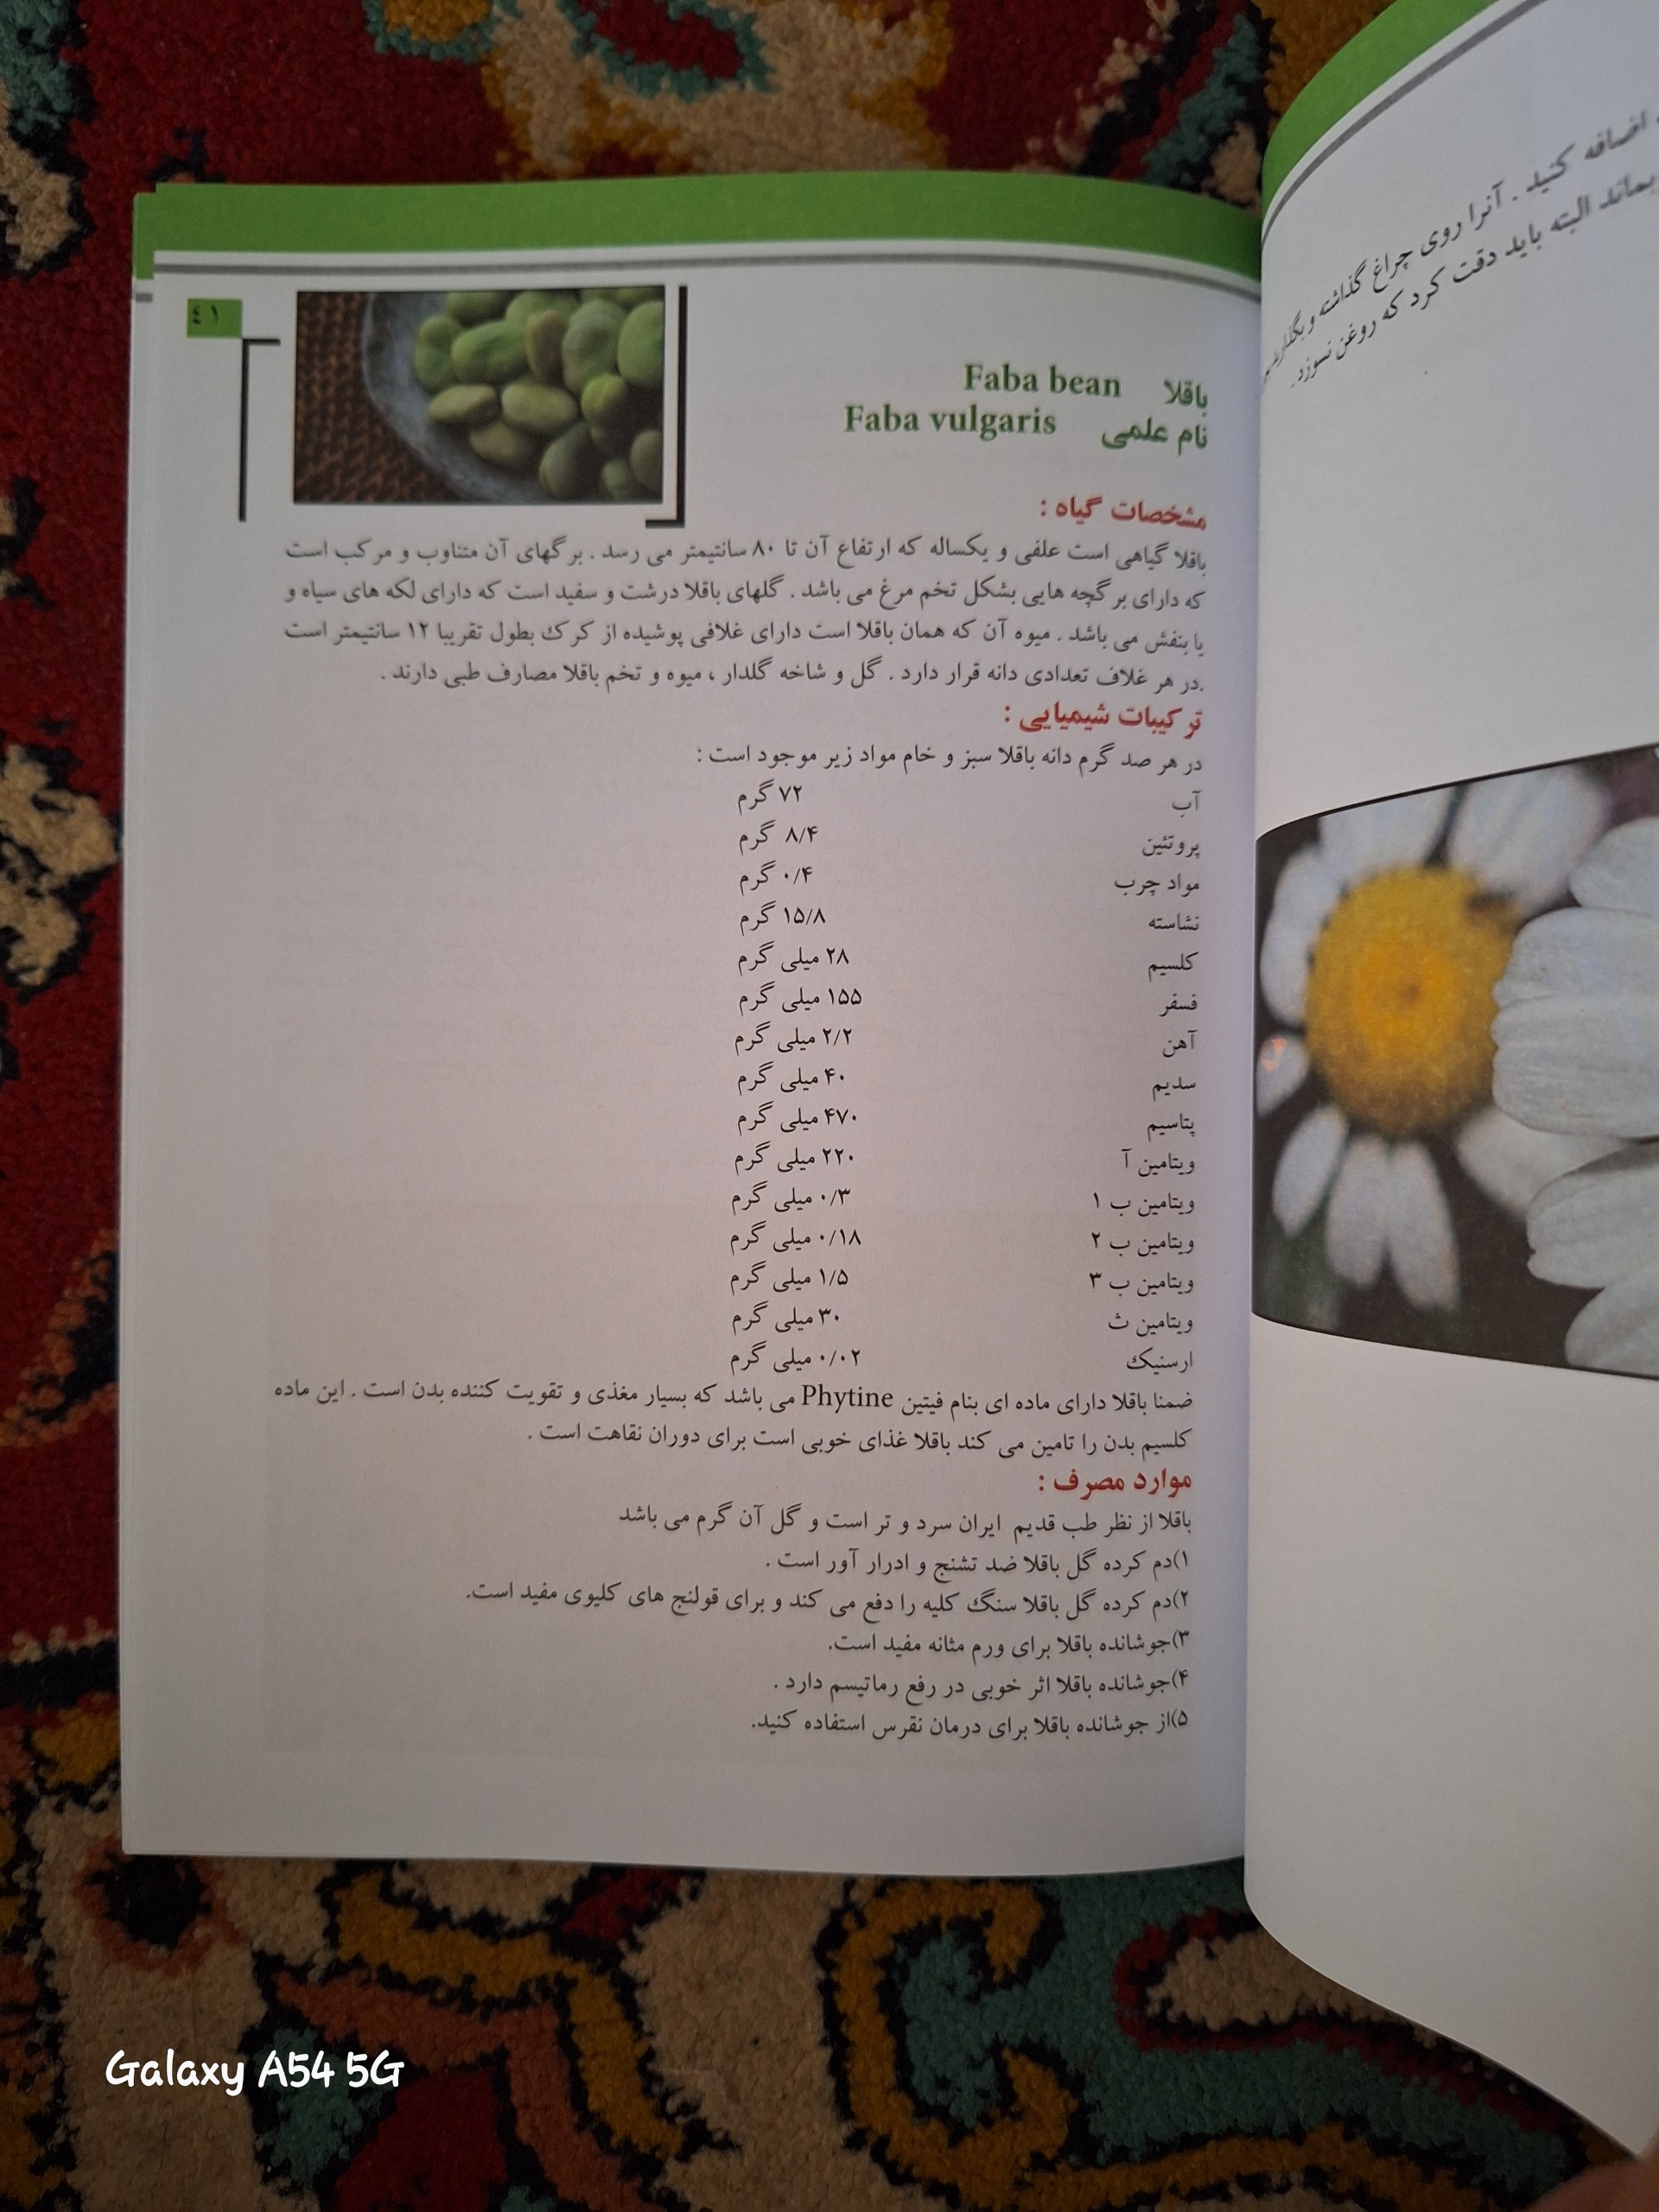 ۴۱
باقلا Faba bean
نام علمی Faba vulgaris
مشخصات گیاه :
باقلا گیاهی است علفی و یکساله که ارتفاع آن تا ۸۰ سانتیمتر می رسد . برگهای آن متناوب و مرکب است
که دارای برگچه هایی بشکل تخم مرغ می باشد . گلهای باقلا درشت و سفید است که دارای لکه های سیاه و
یا بنفش می باشد . میوه آن که همان باقلا است دارای غلافی پوشیده از کرک بطول تقریبا ۱۲ سانتیمتر است
.در هر غلاف تعدادی دانه قرار دارد . گل و شاخه گلدار ، میوه و تخم باقلا مصارف طبی دارند .
ترکیبات شیمیایی :
در هر صد گرم دانه باقلا سبز و خام مواد زیر موجود است :
آب ۷۲ گرم
پروتئین ۸/۴ گرم
مواد چرب ۰/۴ گرم
نشاسته ۱۵/۸ گرم
کلسیم ۲۸ میلی گرم
فسفر ۱۵۵ میلی گرم
آهن ۲/۲ میلی گرم
سدیم ۴۰ میلی گرم
پتاسیم ۴۷۰ میلی گرم
ویتامین آ ۲۲۰ میلی گرم
ویتامین ب ۱ ۰/۳ میلی گرم
ویتامین ب ۲ ۰/۱۸ میلی گرم
ویتامین ب ۳ ۱/۵ میلی گرم
ویتامین ث ۳۰ میلی گرم
ارسنیک ۰/۰۲ میلی گرم
ضمنا باقلا دارای ماده ای بنام فیتین Phytine می باشد که بسیار مغذی و تقویت کننده بدن است . این ماده
کلسیم بدن را تامین می کند باقلا غذای خوبی است برای دوران نقاهت است .
موارد مصرف :
باقلا از نظر طب قدیم ایران سرد و تر است و گل آن گرم می باشد
۱)دم کرده گل باقلا ضد تشنج و ادرار آور است .
۲)دم کرده گل باقلا سنگ کلیه را دفع می کند و برای قولنج های کلیوی مفید است.
۳)جوشانده باقلا برای ورم مثانه مفید است.
۴)جوشانده باقلا اثر خوبی در رفع رماتیسم دارد .
۵)از جوشانده باقلا برای درمان نقرس استفاده کنید.
اضافه کنید . آنرا روی چراغ گذاشته و
بماند البته باید دقت کرد که روغن نسوزد.
Galaxy A54 5G